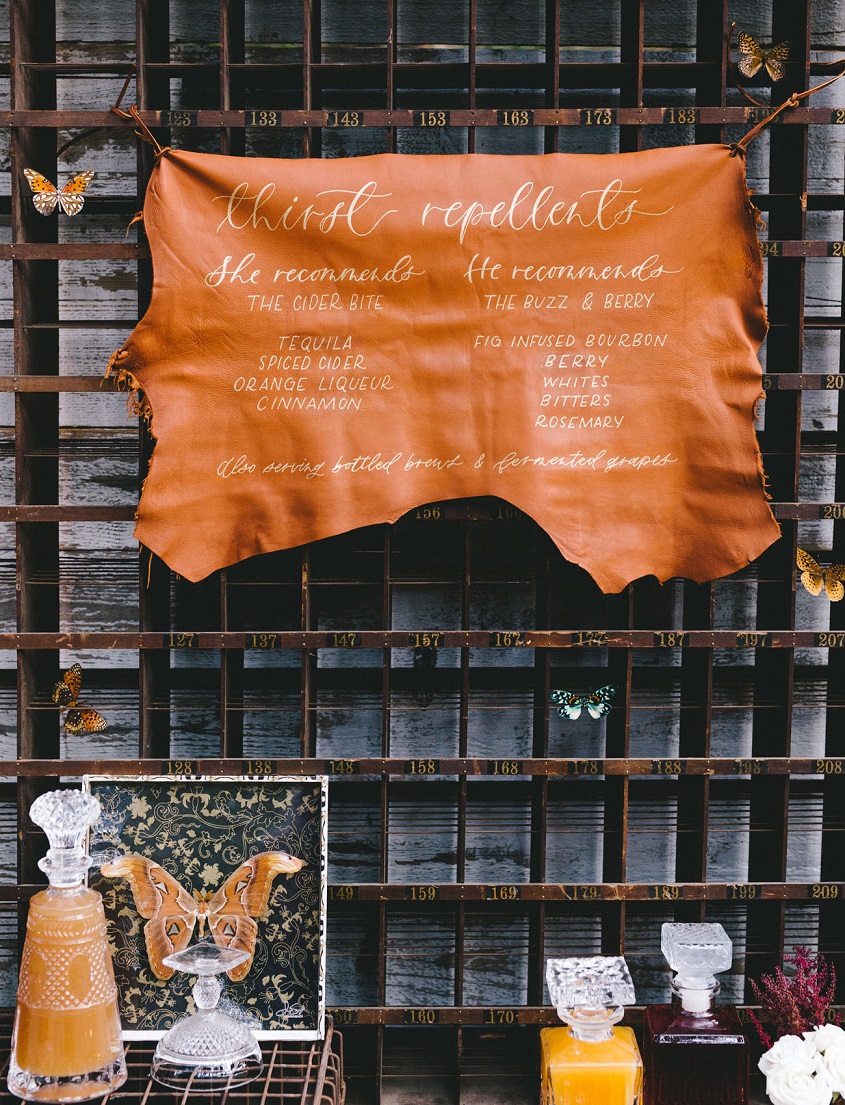 123 133 143 153 163 173 183
thirst repellents
She recommends
THE CIDER BITE
TEQUILA
SPICED CIDER
ORANGE LIQUEUR
CINNAMON
He recommends
THE BUZZ & BERRY
FIG INFUSED BOURBON
BERRY
WHITES
BITTERS
ROSEMARY
also serving bottled brews & fermented grapes
156
127 137 147 157 167 177 187 197 207
128 138 148 158 168 178 188 198 208
159 169 179 189 199 209
160 170